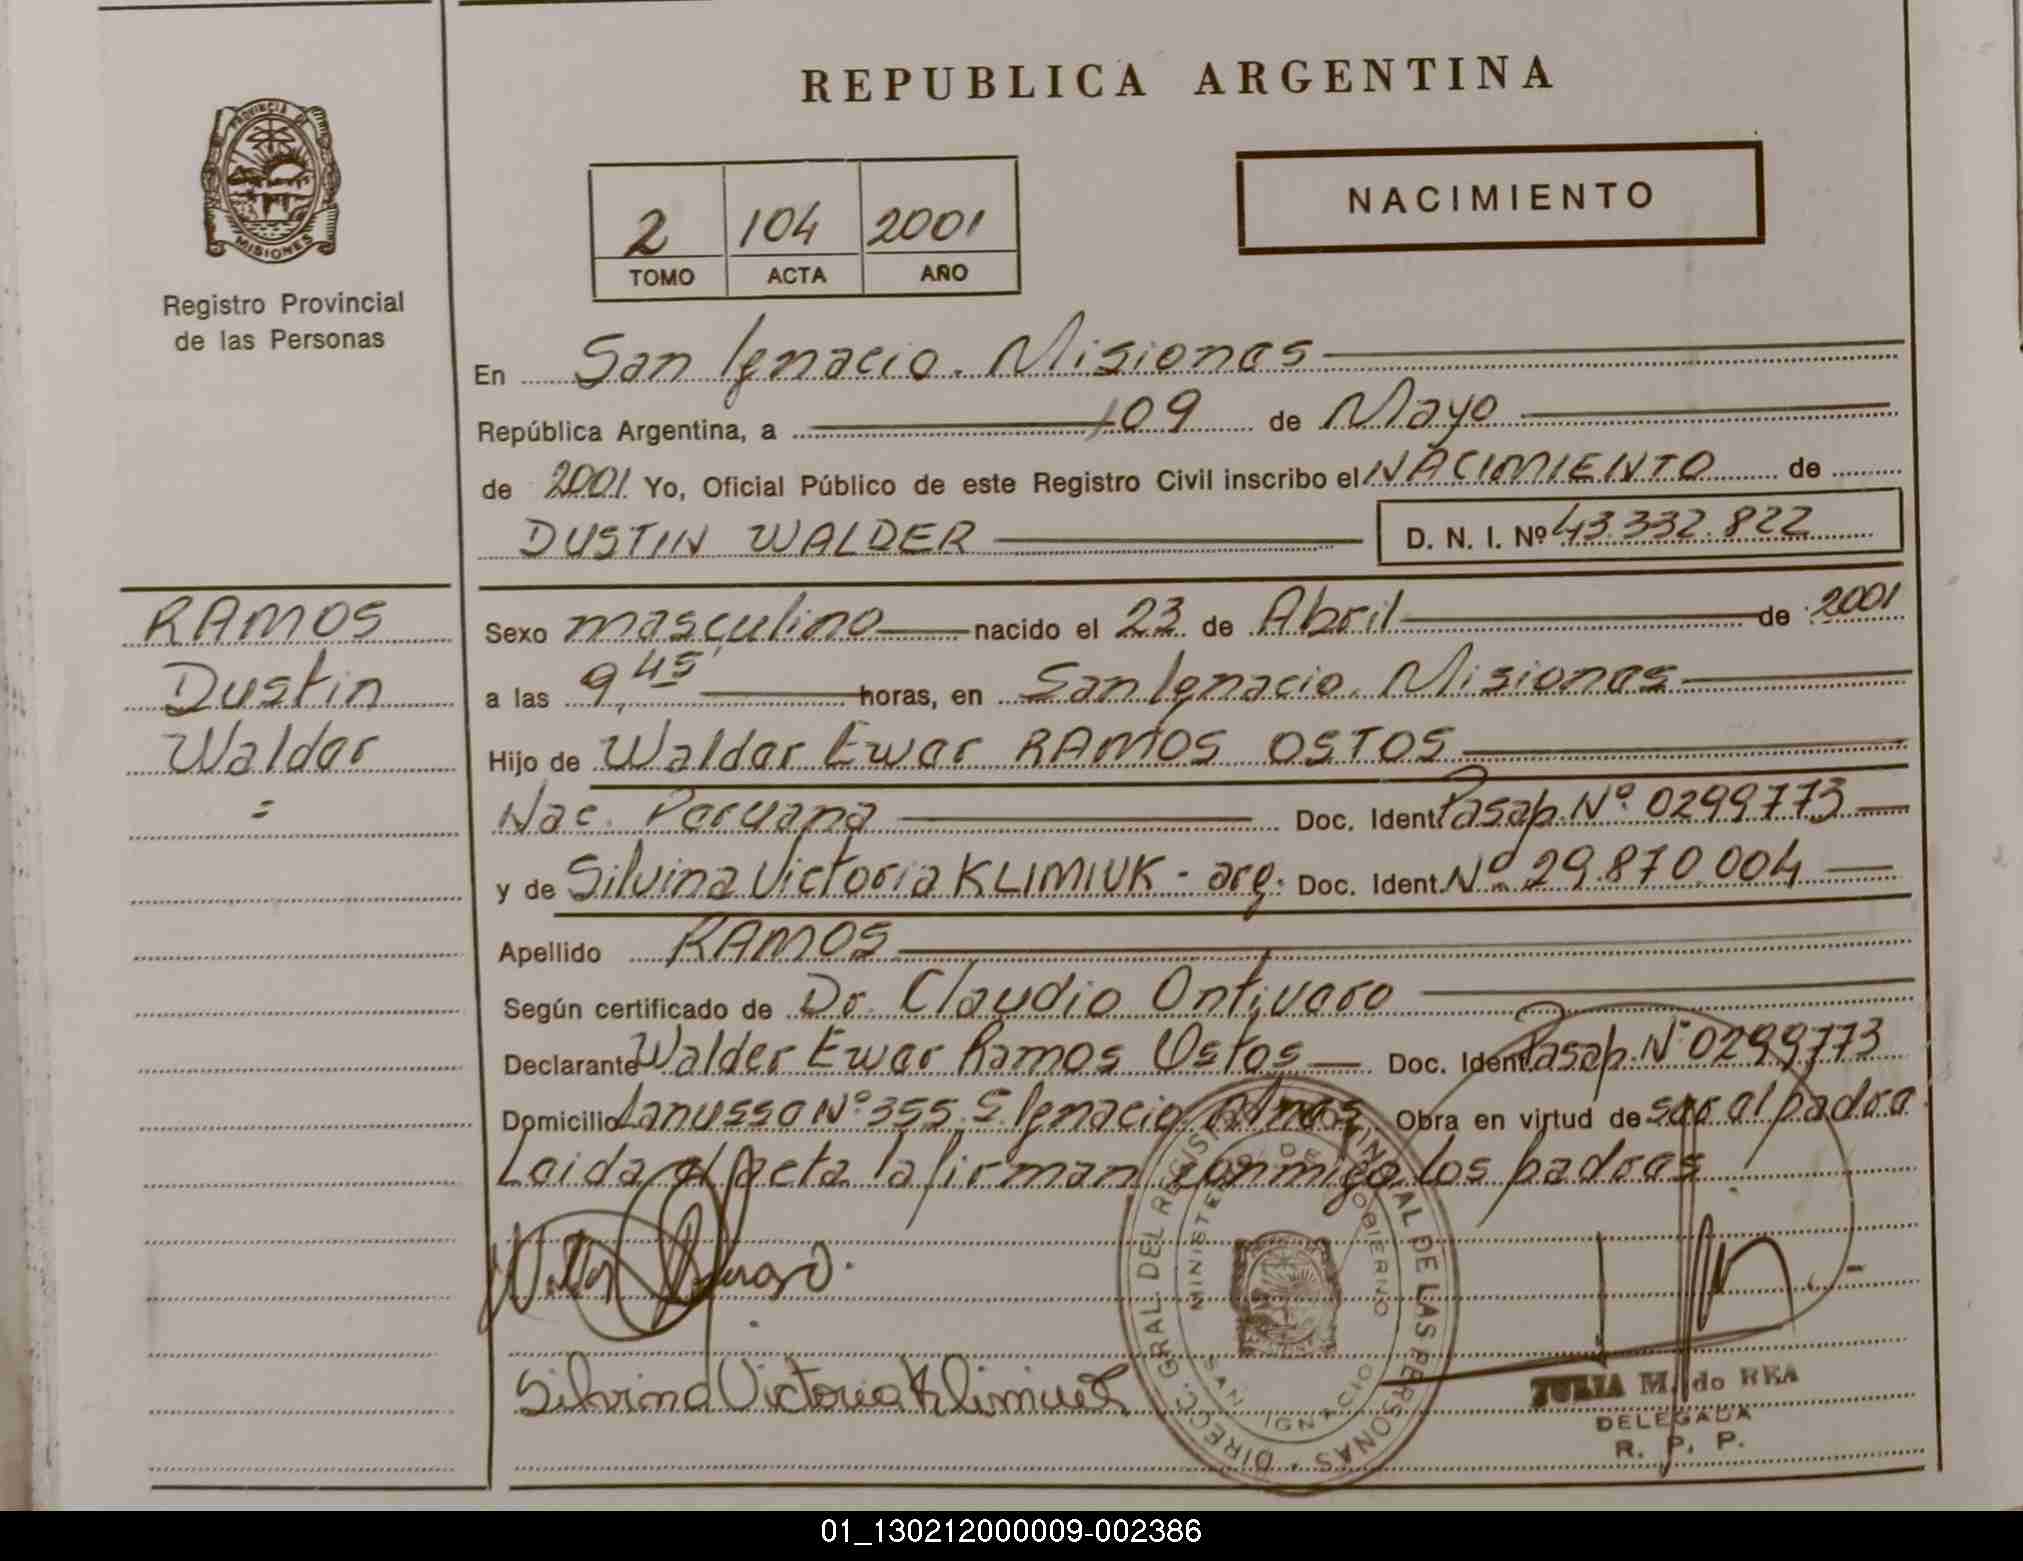 REPUBLICA ARGENTINA
PROVINCIA DE
MISIONES
Registro Provincial
de las Personas
NACIMIENTO
2 104 2001
TOMO ACTA AÑO
En San Ignacio. Misiones
República Argentina, a 09 de Mayo
de 2001 Yo, Oficial Público de este Registro Civil inscribo el NACIMIENTO de
DUSTIN WALDER D. N. I. Nº 43.332.822
RAMOS
Dustin
Walder
=
Sexo masculino nacido el 23 de Abril de 2001
a las 9,45' horas, en San Ignacio. Misiones
Hijo de Walder Ewer RAMOS OSTOS
Nac. Peruana Doc. Ident. Pasap. Nº 0299773
y de Silvina Victoria KLIMIUK - arg. Doc. Ident. Nº 29.870.004
Apellido RAMOS
Según certificado de Dr. Claudio Ontivero
Declarante Walder Ewer Ramos Ostos Doc. Ident. Pasap. Nº 0299773
Domicilio Lanusse Nº 355 S. Ignacio. Mnes. Obra en virtud de ser el padre
Leida el acta la firman conmigo los padres
DIRECC. GRAL. DEL REGISTRO PROVINCIAL DE LAS PERSONAS
MINISTERIO DE GOBIERNO
SAN IGNACIO
Silvina Victoria Klimiuk
JULIA M. do REA
DELEGADA
R. P. P.
01_130212000009-002386